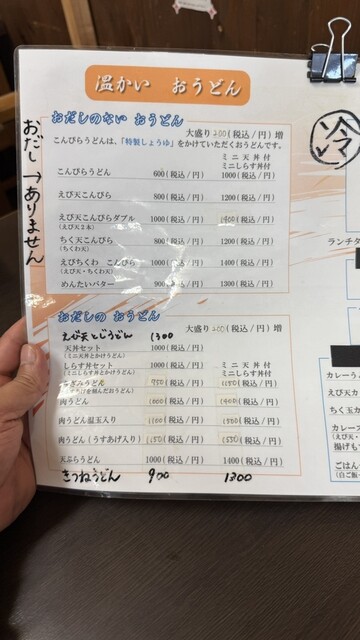 温かい おうどん
おだし→ありません
おだしのない おうどん
大盛り200(税込/円)増
こんぴらうどんは、「特製しょうゆ」をかけていただくおうどんです。
ミニ天丼付
ミニしらす丼付
こんぴらうどん 600(税込/円) 1000(税込/円)
えび天こんぴら 800(税込/円) 1200(税込/円)
えび天こんぴらダブル 1000(税込/円) 1400(税込/円)
(えび天2本)
ちく天こんぴら 800(税込/円) 1200(税込/円)
(ちくわ天)
えびちくわ こんぴら 1000(税込/円) 1400(税込/円)
(えび天・ちくわ天)
めんたいバター 900(税込/円) 1300(税込/円)
おだしの おうどん
えび天とじうどん 1300 大盛り200(税込/円)増
天丼セット 1000(税込/円)
(ミニ天丼とかけうどん)
しらす丼セット 1000(税込/円) ミニ天丼付
(ミニしらす丼とかけうどん) ミニしらす丼付
きざみうどん 750(税込/円) 1150(税込/円)
肉うどん 1000(税込/円) 1400(税込/円)
肉うどん温玉入り 1100(税込/円) 1500(税込/円)
肉うどん(うすあげ入り) 1150(税込/円) 1550(税込/円)
天ぷらうどん 1000(税込/円) 1400(税込/円)
きつねうどん 900 1300
冷
ランチタ
カレーう
えび天カ
ちく玉カ
カレース
(えび天・
揚げも
ごはん
(白ご飯